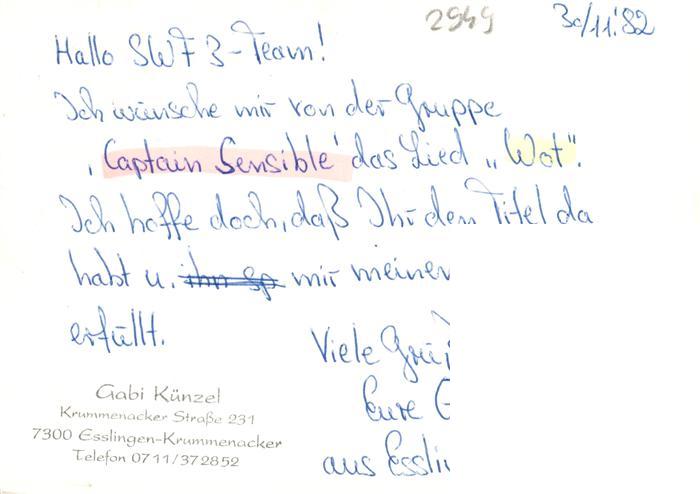 2949
30/11.'82
Hallo SWF 3-Team!
Ich wünsche mir von der Gruppe
'Captain Sensible' das Lied „Wot".
Ich hoffe doch, daß Ihr den Titel da
habt u. ihn sp mir meinen
erfüllt.
Viele Grü
Eure G
aus Essli
Gabi Künzel
Krummenacker Straße 231
7300 Esslingen-Krummenacker
Telefon 0711/372852